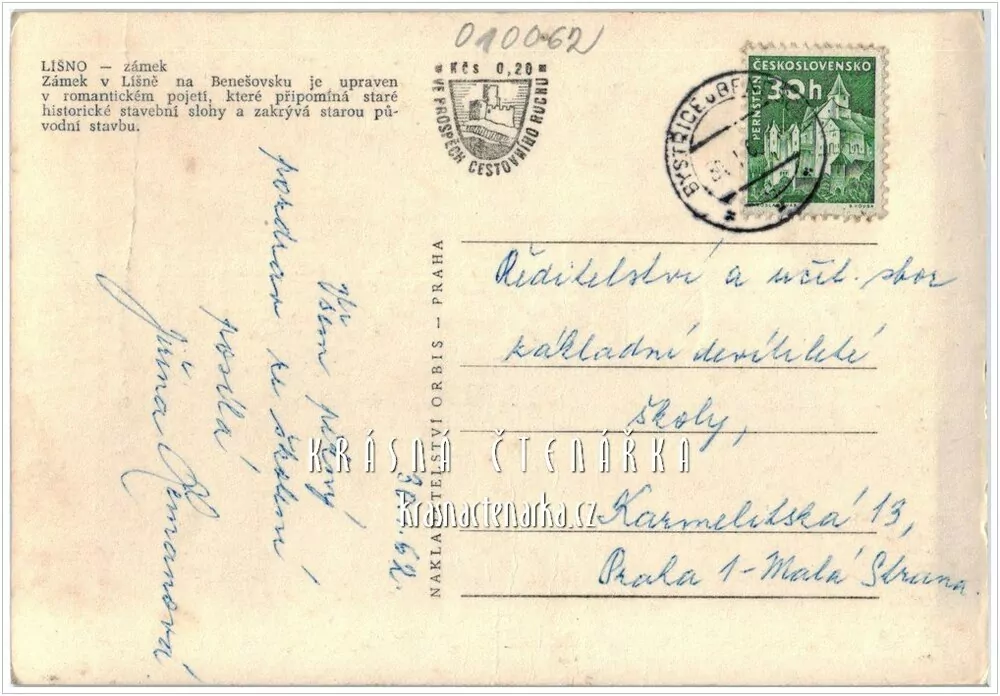 010062
LÍŠNO — zámek
Zámek v Líšně na Benešovsku je upraven
v romantickém pojetí, které připomíná staré
historické stavební slohy a zakrývá starou pů-
vodní stavbu.
* Kčs 0,20 *
VE PROSPĚCH CESTOVNÍHO RUCHU
BYSTŘICE U BE
ČESKOSLOVENSKO
30h
PERNŠTEJN
62.
Všem pěkný
pozdrav ze školení
posílá
Jiřina
NAKLADATELSTVÍ ORBIS — PRAHA
Ředitelství a učit. sbor
základní devítileté
školy,
Karmelitská 13,
Praha 1-Malá Strana.
KRÁSNÁ ČTENÁŘKA
krasnactenarka.cz